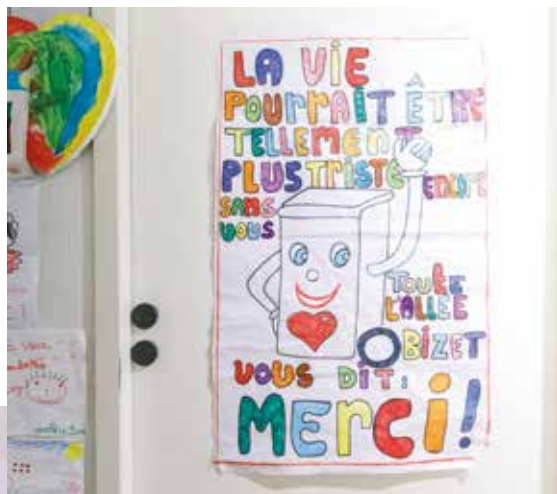 LA VIE
POURRAIT ÊTRE
TELLEMENT
PLUS TRISTE ENCORE
SANS
VOUS
TOUTE
L'ALLÉE
BIZET
VOUS DIT:
MERCI!